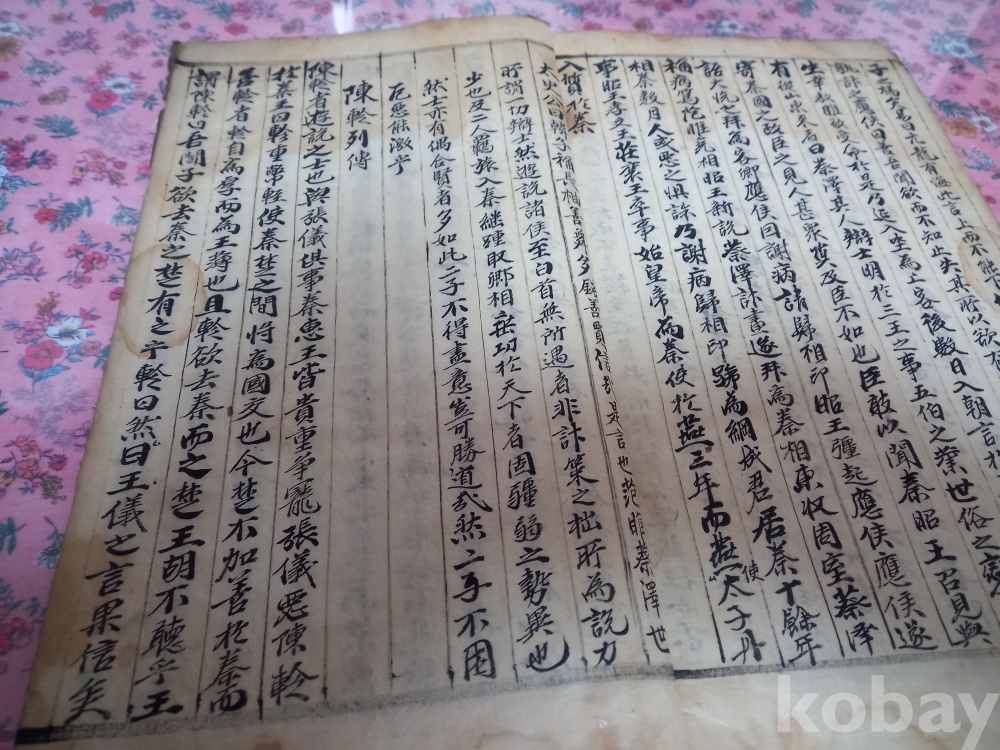 子禍矣易曰亢龍有悔此言上而不能
孰計之應侯曰善吾聞欲而不知止失其所以欲
生幸教睢敬受命於是乃延入坐為上客後數日入朝言
有從山東來者曰蔡澤其人辯士明於三王之事五伯之業世俗之變
寄秦國之政臣之見人甚衆莫及臣不如也臣敢以聞秦昭王召見與
語大悅之拜為客卿應侯因謝病請歸相印昭王彊起應侯應侯遂
稱病篤范睢免相昭王新說蔡澤計畫遂拜為秦相東收周室蔡澤
相秦數月人或惡之懼誅乃謝病歸相印號為綱成君居秦十餘年
事昭王孝文王莊襄王卒事始皇帝為秦使於燕三年而燕使太子丹
入質於秦
太史公曰韓子稱長袖善舞多錢善賈信哉是言也范睢蔡澤世
所謂一切辯士然遊說諸侯至白首無所遇者非計策之拙所為說力
少也及二人羈旅入秦繼踵取卿相垂功於天下者固彊弱之勢異也
然士亦有偶合賢者多如此二子不得盡意豈可勝道哉然二子不困
厄惡能激乎
陳軫列傳
陳軫者遊說之士也與張儀俱事秦惠王皆貴重爭寵張儀惡陳軫
於秦王曰軫重幣輕使秦楚之間將為國交也今楚不加善於秦而
善軫者軫自為厚而為王薄也且軫欲去秦而之楚王胡不聽乎王
謂陳軫曰吾聞子欲去秦之楚有之乎軫曰然曰王儀之言果信矣
kobay